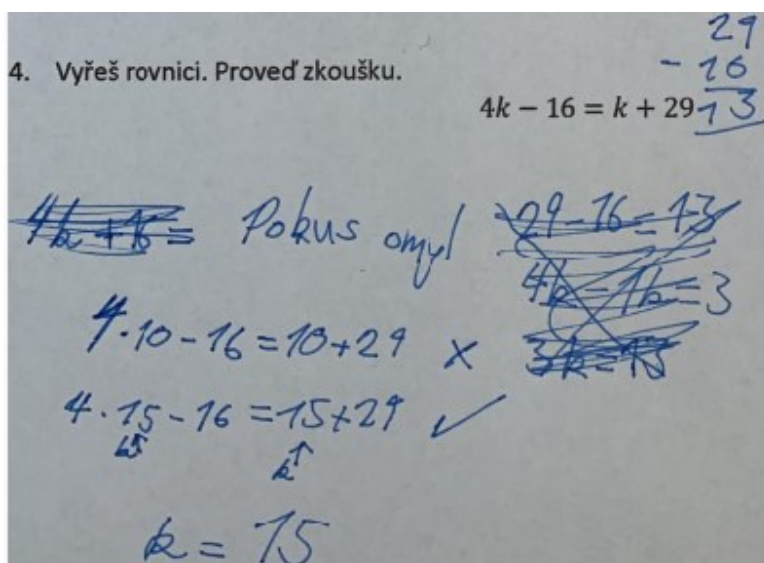 4. Vyřeš rovnici. Proveď zkoušku.
29
- 16
13
4k − 16 = k + 29
4k + 16 =
Pokus omyl
29 - 16 = 13
4k - 1k = 3
3k = 13
4 · 10 - 16 = 10 + 29 ×
4 · 15 - 16 = 15 + 29 ✓
k↑ k↑
k = 15